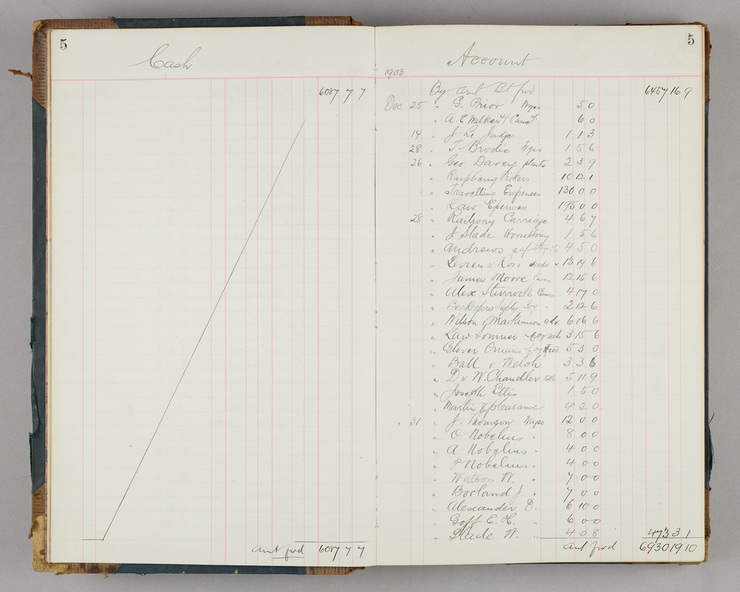 5
Cash
6087 7 7
Amt fwd 6087 7 7
5
Account
1903
By Amt Bt fwd 6457 16 9
Dec 25 " G. Prior Wges 5 0
" A. E. Walker 6 0
14 " J. Le Judge 1 1 3
28 " T. Brodie Wges 1 5 6
26 " Geo Davey plants 2 3 9
" Raspberry Pickers 10 12 1
" Travelling Expenses 130 0 0
" Law Epenses 195 0 0
28 " Railway Carriage 4 6 7
" J Slade 1 5 6
" Andrews 4 5 0
" & Ross 13 14 6
" James Moore 12 15 6
" Alex Sturrock 4 17 0
" 2 12 6
" Wilson & Mackinnon adv. 6 16 6
" Law Somner 3 15 6
" 5 3 0
" Ball & Welch 3 3 6
" D & W. Chandler 5 11 9
" Joseph Ellis 1 5 0
" Martin & Pleasance 4 2 0
" 31 " J. Thomson Wages 12 0 0
" O Nobelius " 8 0 0
" A Nobelius " 4 0 0
" Nobelius " 4 0 0
" W. " 7 0 0
" Borland J. " 7 0 0
" Alexander D. 6 10 0
" Goff E. H. " 6 0 0
" Slede W. " 4 0 8 473 3 1
Amt fwd 6930 19 10